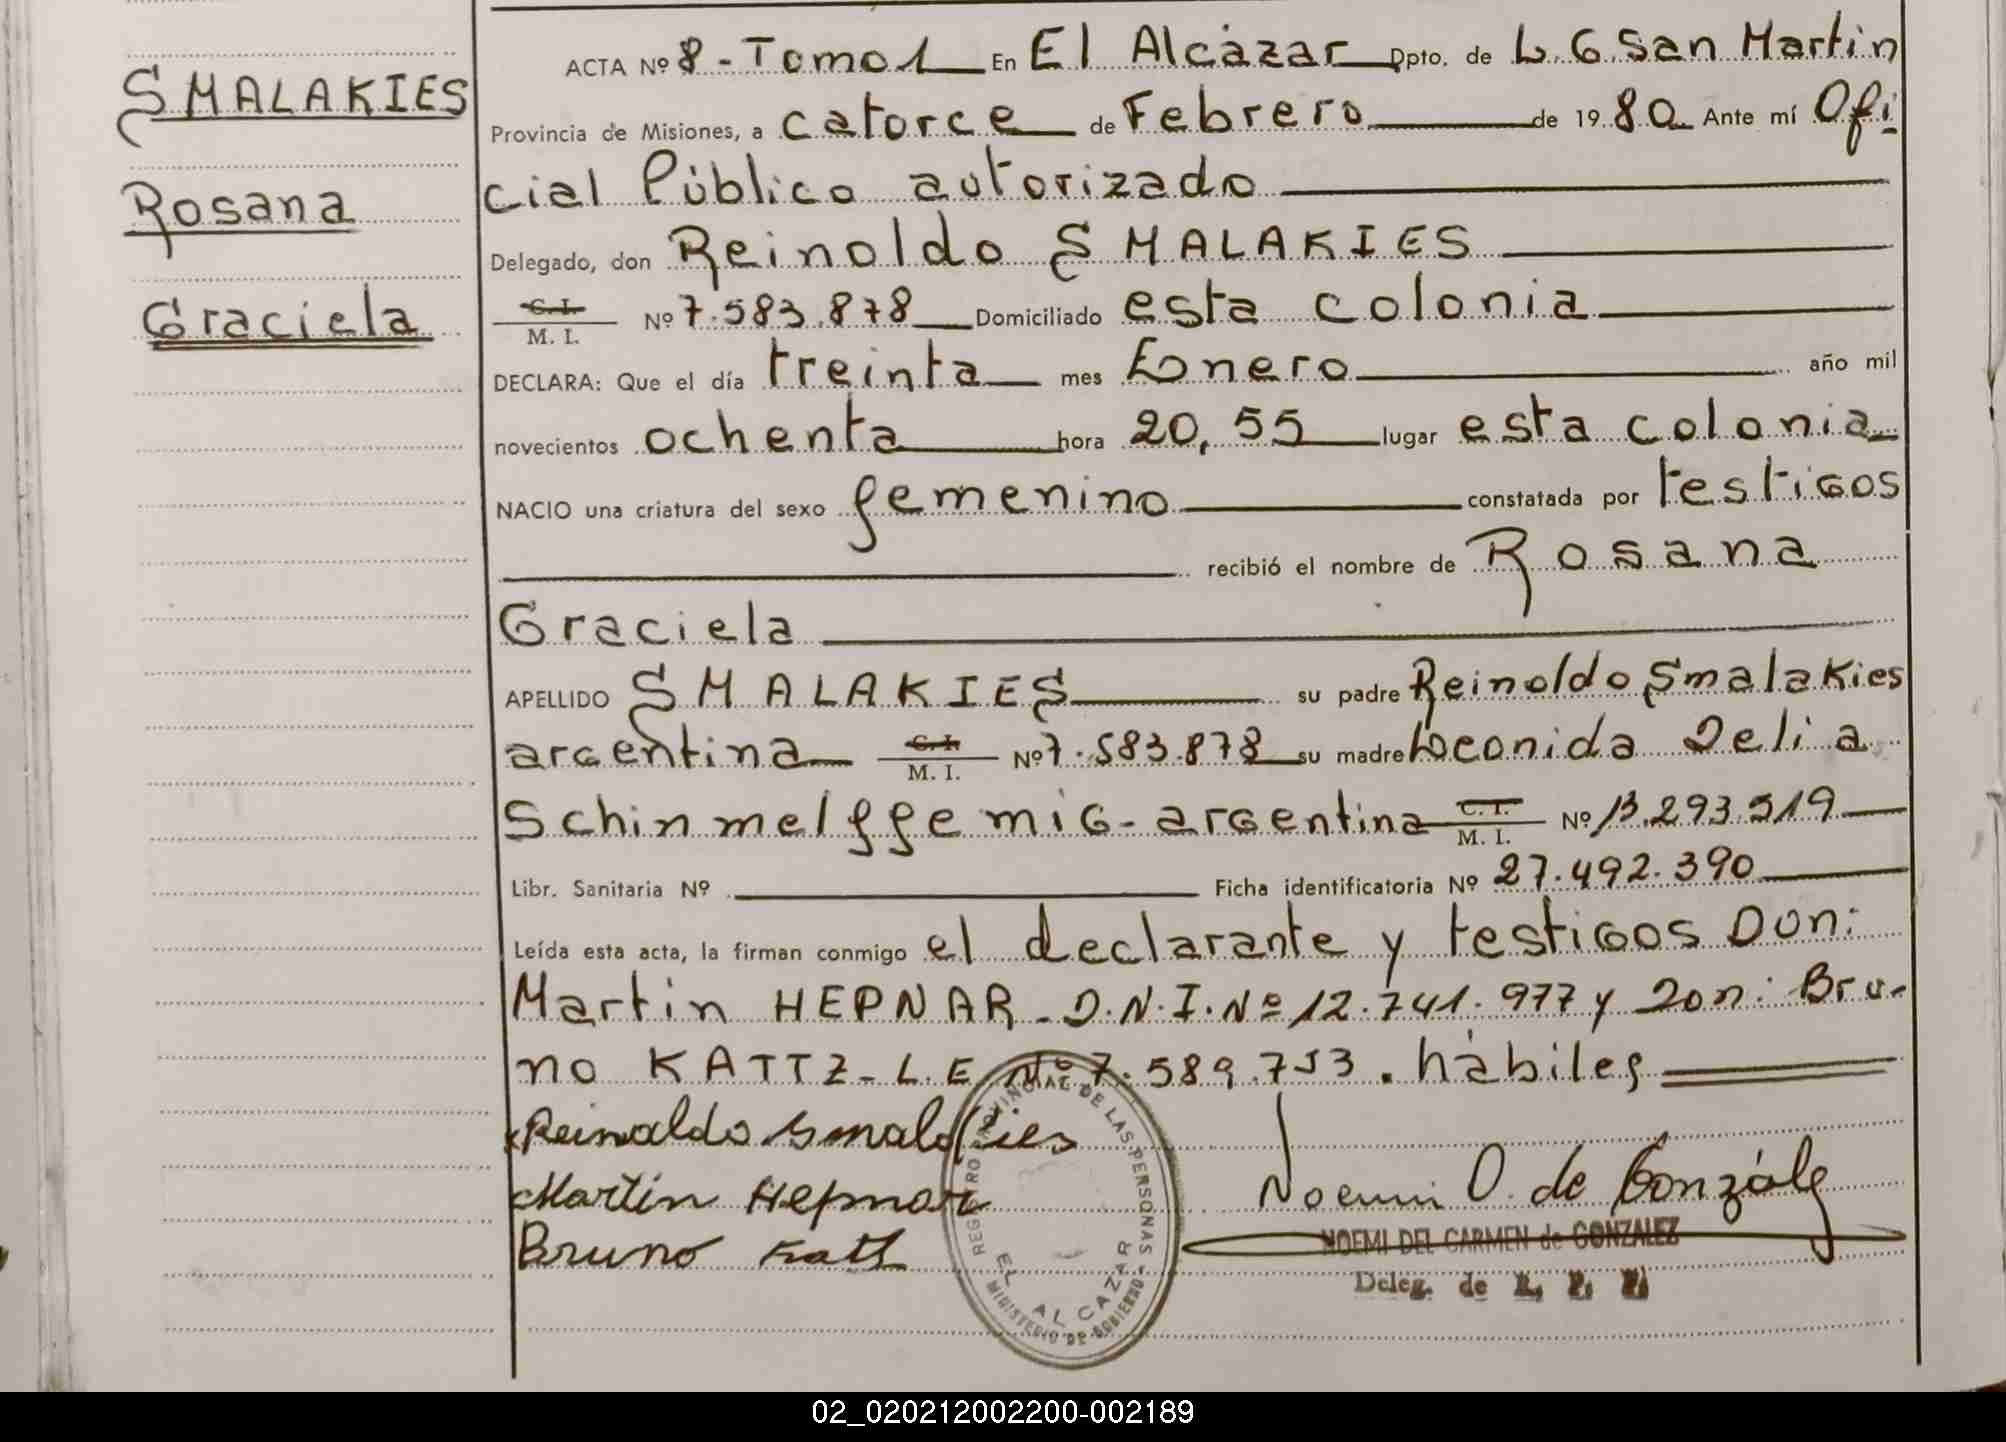 SMALAKIES
Rosana
Graciela
ACTA Nº 8 - Tomo 1 En El Alcázar Dpto. de L. G. San Martin
Provincia de Misiones, a catorce de Febrero de 1980 Ante mí Ofi
cial Público autorizado
Delegado, don Reinoldo SMALAKIES
C. I.
M. I. Nº 7.583.878 Domiciliado esta colonia
DECLARA: Que el día treinta mes Enero año mil
novecientos ochenta hora 20,55 lugar esta colonia
NACIO una criatura del sexo femenino constatada por testigos
recibió el nombre de Rosana
Graciela
APELLIDO SMALAKIES su padre Reinoldo Smalakies
argentina C. I. M. I. Nº 7.583.878 su madre Leonida Delia
Schinmelffemig - argentina C. I. M. I. Nº 13.293.519
Libr. Sanitaria Nº Ficha identificatoria Nº 27.492.390
Leída esta acta, la firman conmigo el declarante y testigos Don:
Martin HEPNAR - D.N.I. Nº 12.741.977 y Don: Bru-
no KATTZ - L.E Nº 7.589.753. hábiles
Reinaldo Smalakies
Martin Hepnar
Bruno Katt
REGISTRO PROVINCIAL DE LAS PERSONAS
EL ALCAZAR
MINISTERIO DE GOBIERNO
Noemi O. de Gonzále
NOEMI DEL CARMEN de GONZALEZ
Deleg. de
02_020212002200-002189